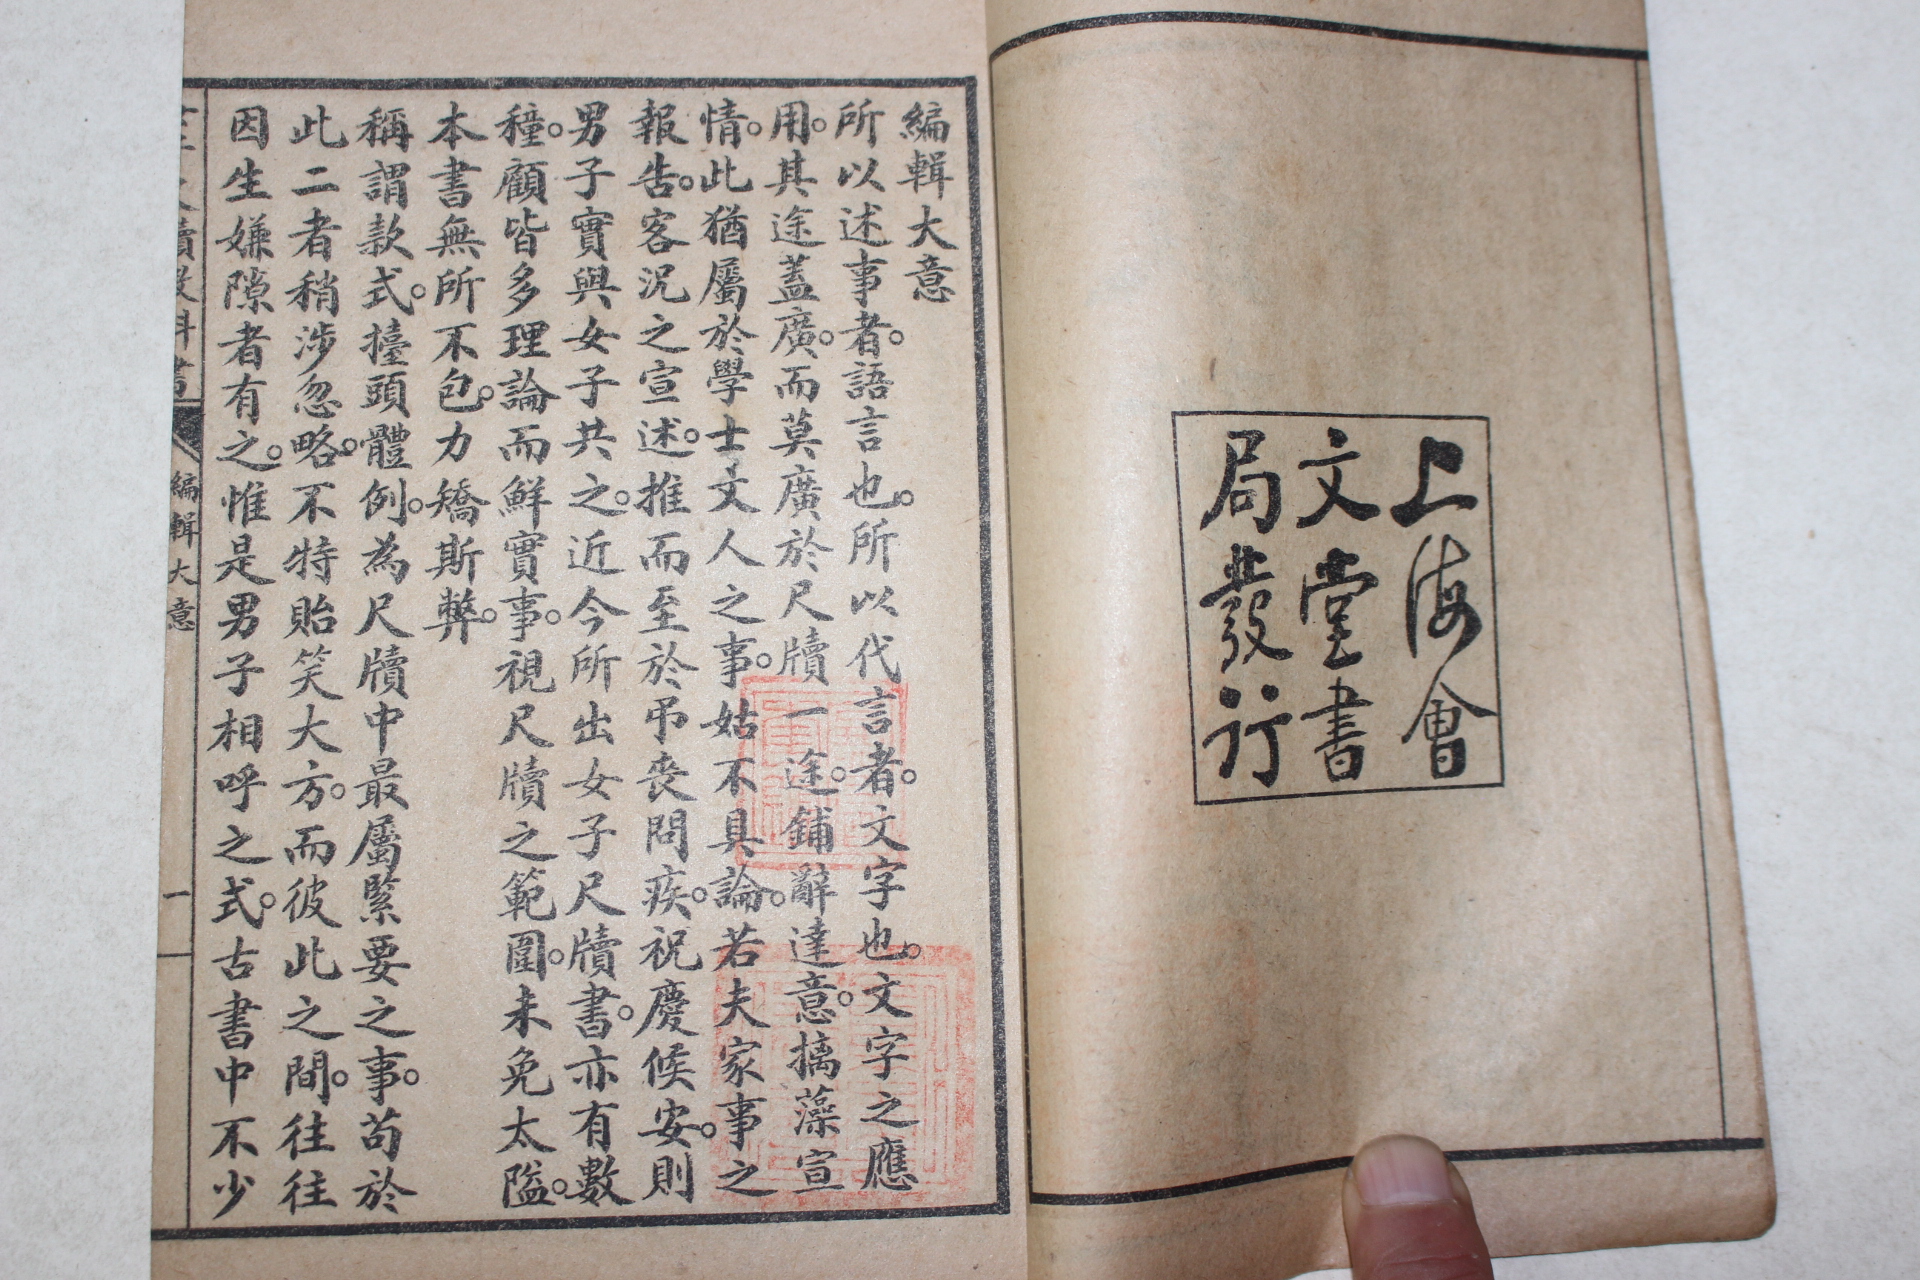 上海會
文堂書
局發行
編輯大意
所以述事者。語言也。所以代言者。文字也。文字之應
用。其途蓋廣。而莫廣於尺牘一途。鋪辭達意。摛藻宣
情。此猶屬於學士文人之事。姑不具論。若夫家事之
報告。客況之宣述。推而至於弔喪問疾。祝慶候安。則
男子實與女子共之。近今所出女子尺牘書。亦有數
種。顧皆多理論而鮮實事。視尺牘之範圍。未免太隘。
本書無所不包。力矯斯弊。
稱謂款式。擡頭體例。為尺牘中最屬緊要之事。苟於
此二者稍涉忽略。不特貽笑大方。而彼此之間。往往
因生嫌隙者有之。惟是男子相呼之式。古書中不少
牘教科書
編輯大意
一